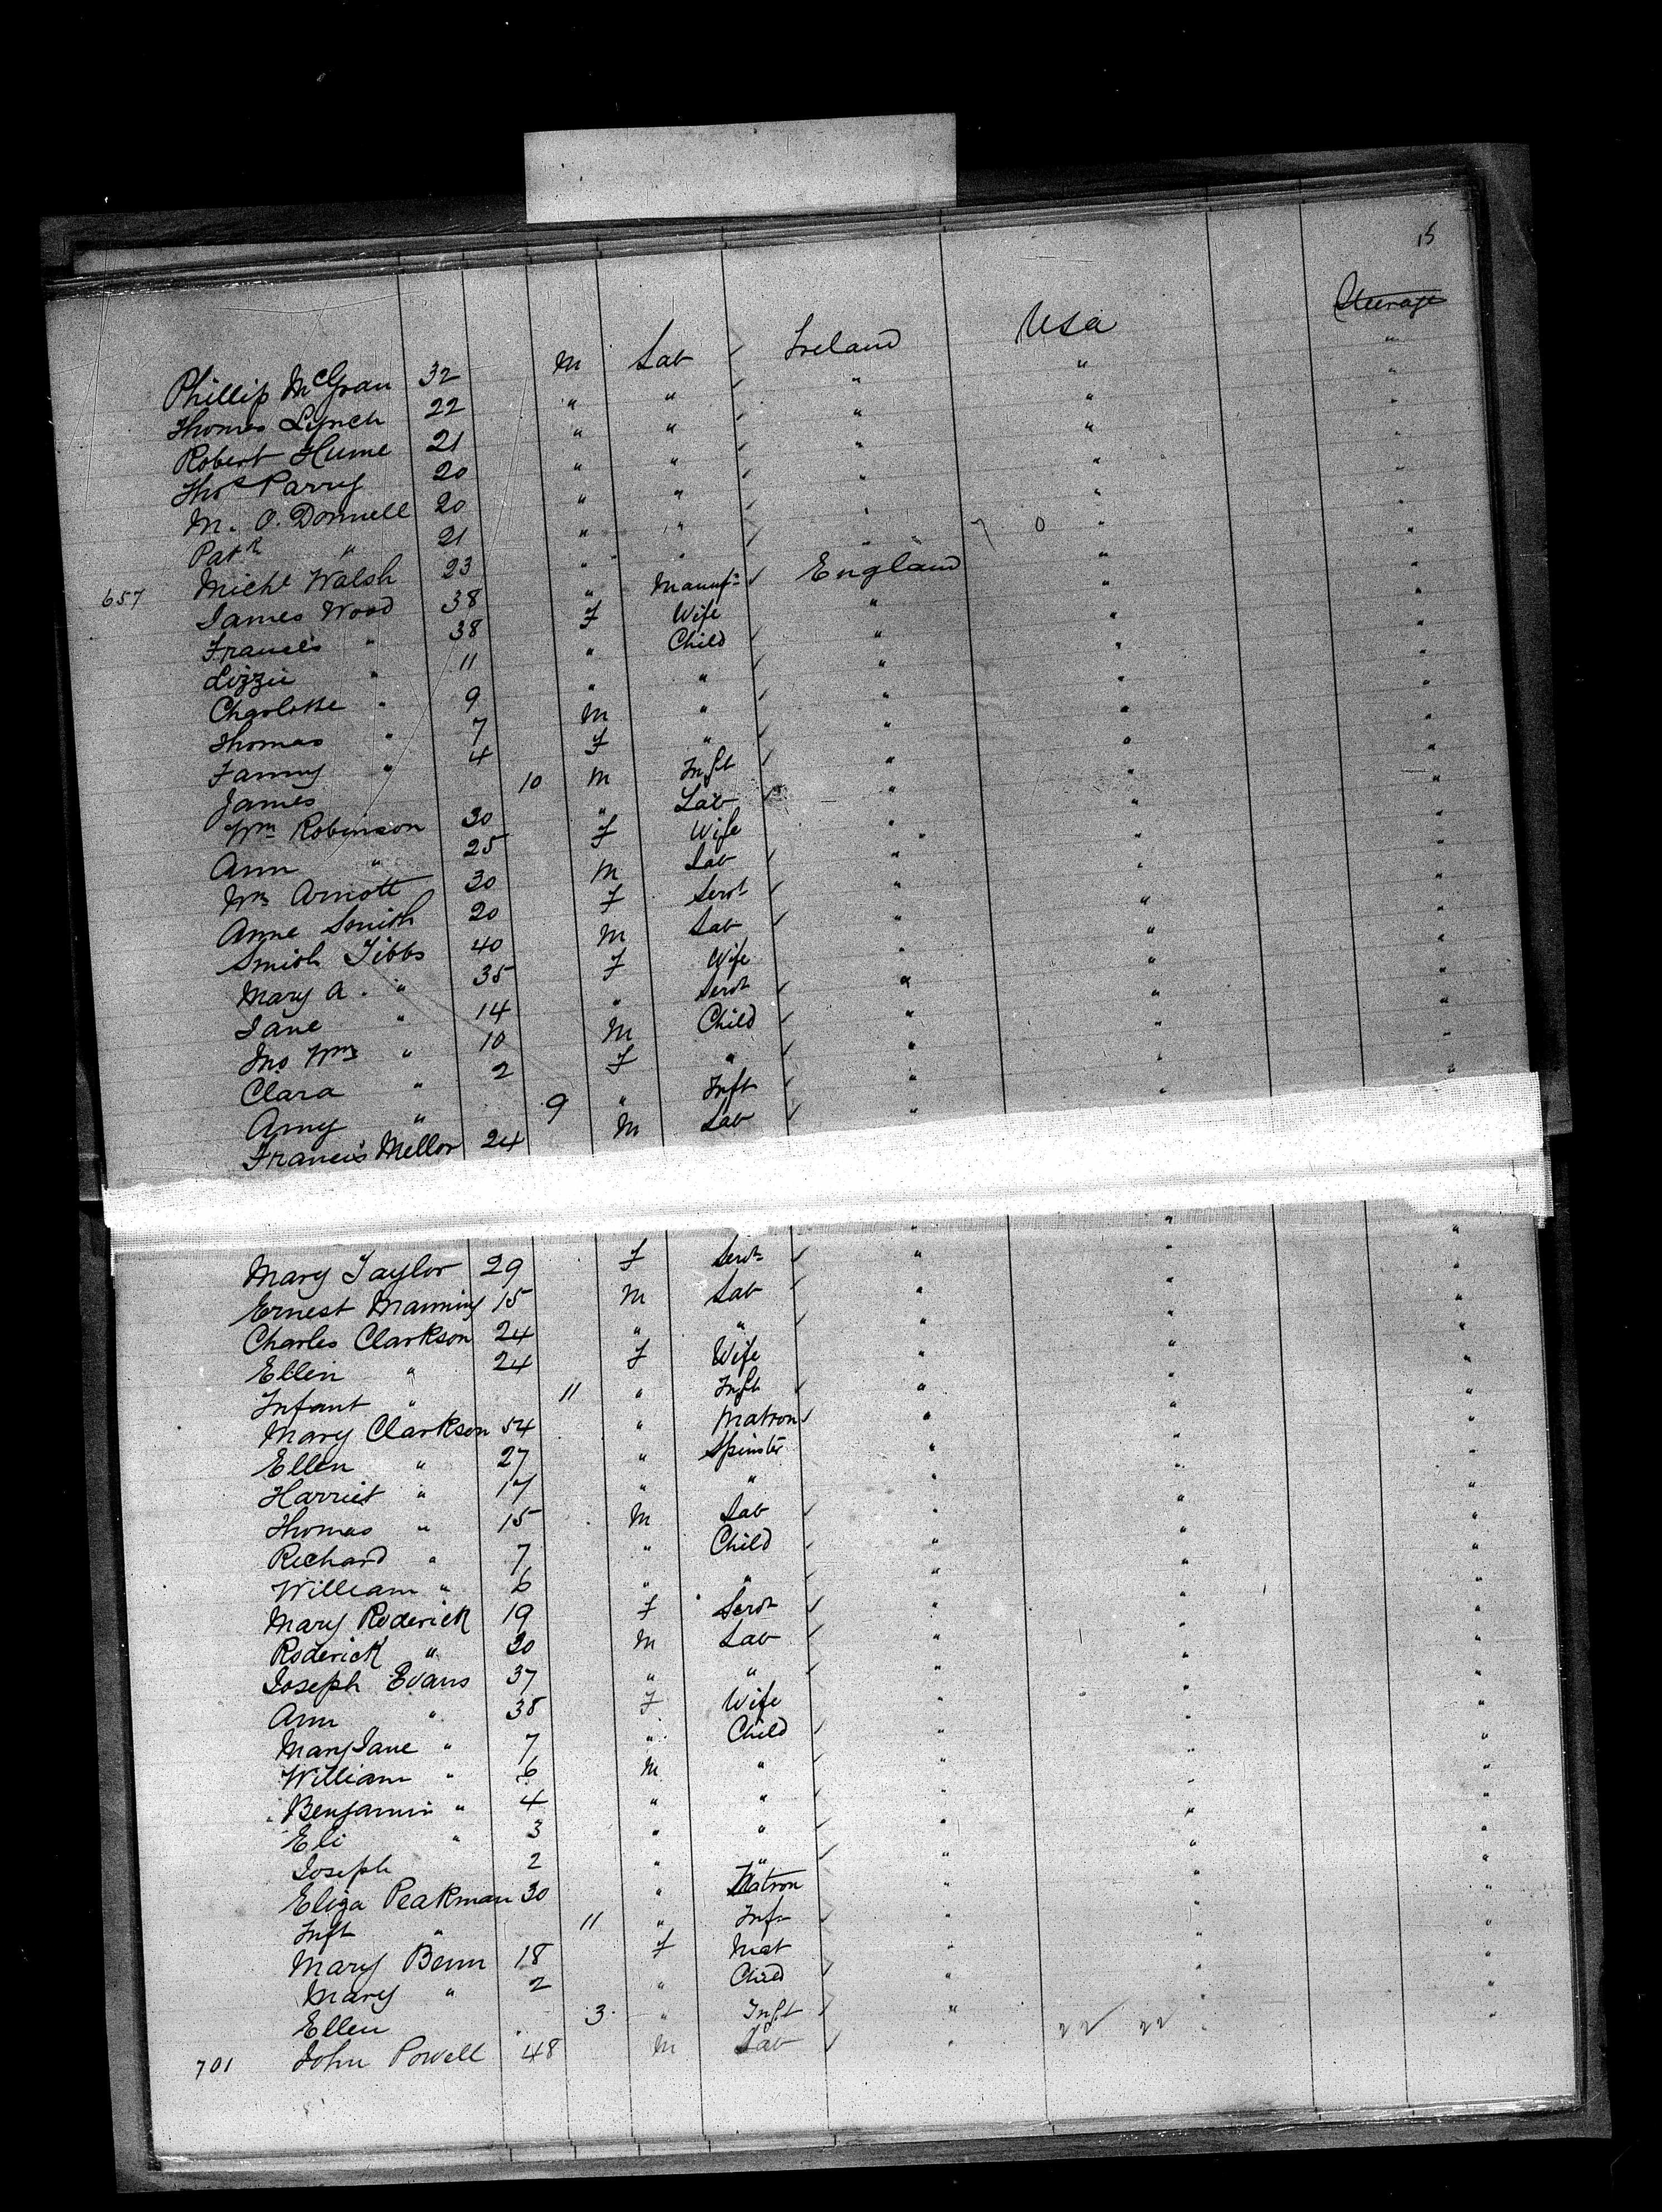 15
Phillip McGran 32 M Lab ✓ Ireland USA Steerage
Thomas Lynch 22 " " ✓ " " "
Robert Hume 21 " " ✓ " " "
Thos Parry 20 " " ✓ " " "
M. O. Donnell 20 " " ✓ " " "
Patk " 21 " " ✓ " " "
657 Michl Walsh 23 " " ✓ " " "
James Wood 38 " Manufr ✓ England " "
Francis " 38 F Wife " " "
Lizzie " 11 " Child ✓ " " "
Charlotte " 9 " " ✓ " " "
Thomas " 7 M " ✓ " " "
Fanny " 4 F " ✓ " " "
James 10 M Inft ✓ " " "
Wm Robinson 30 " Lab ✓ " " "
Ann " 25 F Wife " " "
Wm Arnott 30 M Lab ✓ " " "
Anne Smith 20 F Servt ✓ " " "
Smith Tibbs 40 M Lab ✓ " " "
Mary A. " 35 F Wife " " "
Jane " 14 " Servt ✓ " " "
Jno Wm " 10 M Child ✓ " " "
Clara " 2 F " ✓ " " "
Amy " 9 " Inft ✓ " " "
Francis Mellor 24 M Lab ✓ "
Mary Taylor 29 F Servt ✓ " " "
Ernest Manning 15 M Lab ✓ " " "
Charles Clarkson 24 " " ✓ " " "
Ellen " 24 F Wife " " "
Infant " 11 " Inft ✓ " " "
Mary Clarkson 54 " Matron ✓ " " "
Ellen " 27 " Spinster " " "
Harriet " 17 " " " " "
Thomas " 15 M Lab ✓ " " "
Richard " 7 " Child ✓ " " "
William " 6 " " ✓ " " "
Mary Roderick 19 F Servt ✓ " " "
Roderick " 30 M Lab ✓ " " "
Joseph Evans 37 " " ✓ " " "
Ann " 38 F Wife " " "
Mary Jane " 7 " Child ✓ " " "
William " 6 M " ✓ " " "
Benjamin " 4 " " ✓ " " "
Eli " 3 " " ✓ " " "
Joseph 2 " " ✓ " " "
Eliza Peakman 30 " Matron " " "
Inft " 11 " Inf ✓ " " "
Mary Benn 18 F Mat " " "
Mary " 2 " Child ✓ " " "
Ellen 3 " Inft ✓ " " "
701 John Powell 48 M Lab ✓ "